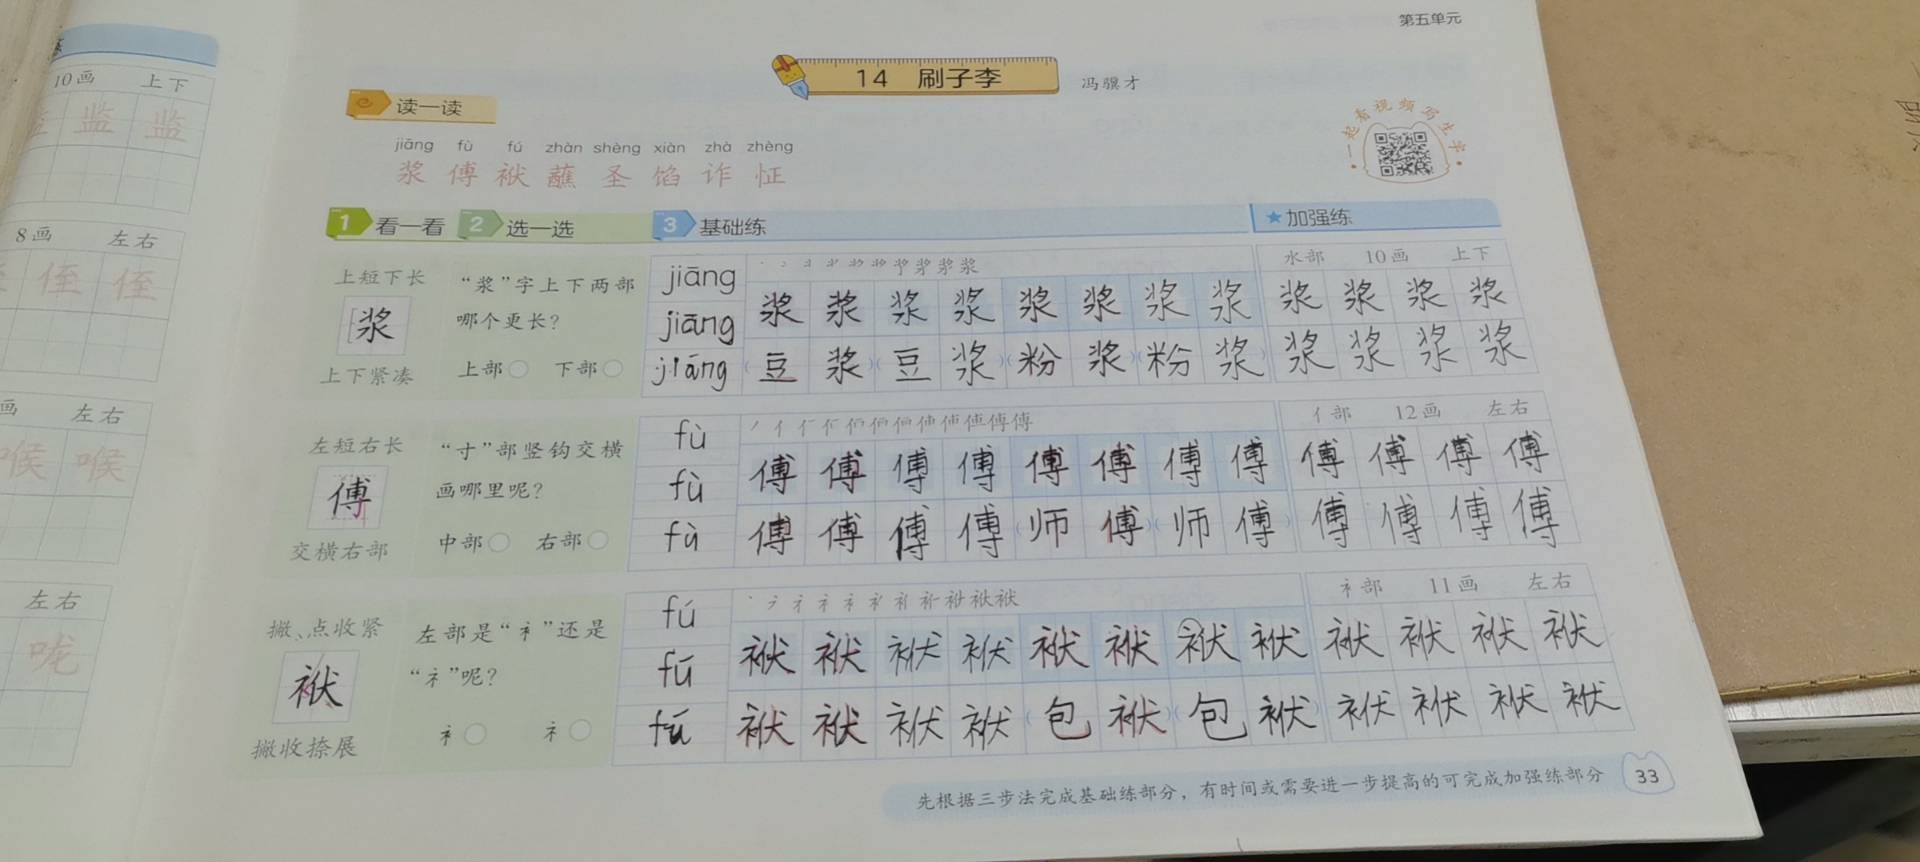 第五单元
14 刷子李 冯骥才
读一读
一起看视频写生字
jiāng fù fú zhàn shèng xiàn zhà zhèng
浆 傅 袱 蘸 圣 馅 诈 怔
1 看一看 2 选一选 3 基础练 ★加强练
上短下长
浆
上下紧凑
“浆”字上下两部
哪个更长？
上部○ 下部○
jiāng
jiāng
jiāng
浆 浆 浆 浆 浆 浆 浆 浆
豆 浆 豆 浆 粉 浆 粉 浆
水部 10画 上下
浆 浆 浆 浆
浆 浆 浆 浆
左短右长
傅
交横右部
“寸”部竖钩交横
画哪里呢？
中部○ 右部○
fù
fù
fù
傅 傅 傅 傅 傅 傅 傅 傅
傅 傅 傅 傅 师 傅 师 傅
亻部 12画 左右
傅 傅 傅 傅
傅 傅 傅 傅
撇、点收紧
袱
撇收捺展
左部是“衤”还是
“礻”呢？
衤○ 礻○
fú
fú
fú
袱 袱 袱 袱 袱 袱 袱 袱
袱 袱 袱 袱 包 袱 包 袱
衤部 11画 左右
袱 袱 袱 袱
袱 袱 袱 袱
先根据三步法完成基础练部分，有时间或需要进一步提高的可完成加强练部分
33
10画 上下
监 监
8画 左右
侄 侄
画 左右
喉 喉
左右
咙